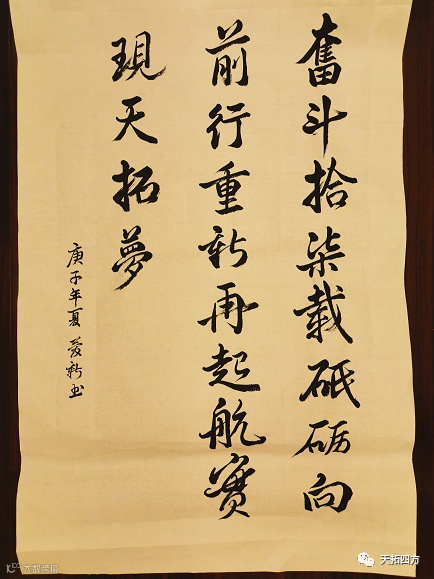 奮斗拾柒載砥砺向
前行重新再起航實
現天拓夢
庚子年夏 爱新书
天拓四方
大数跨境